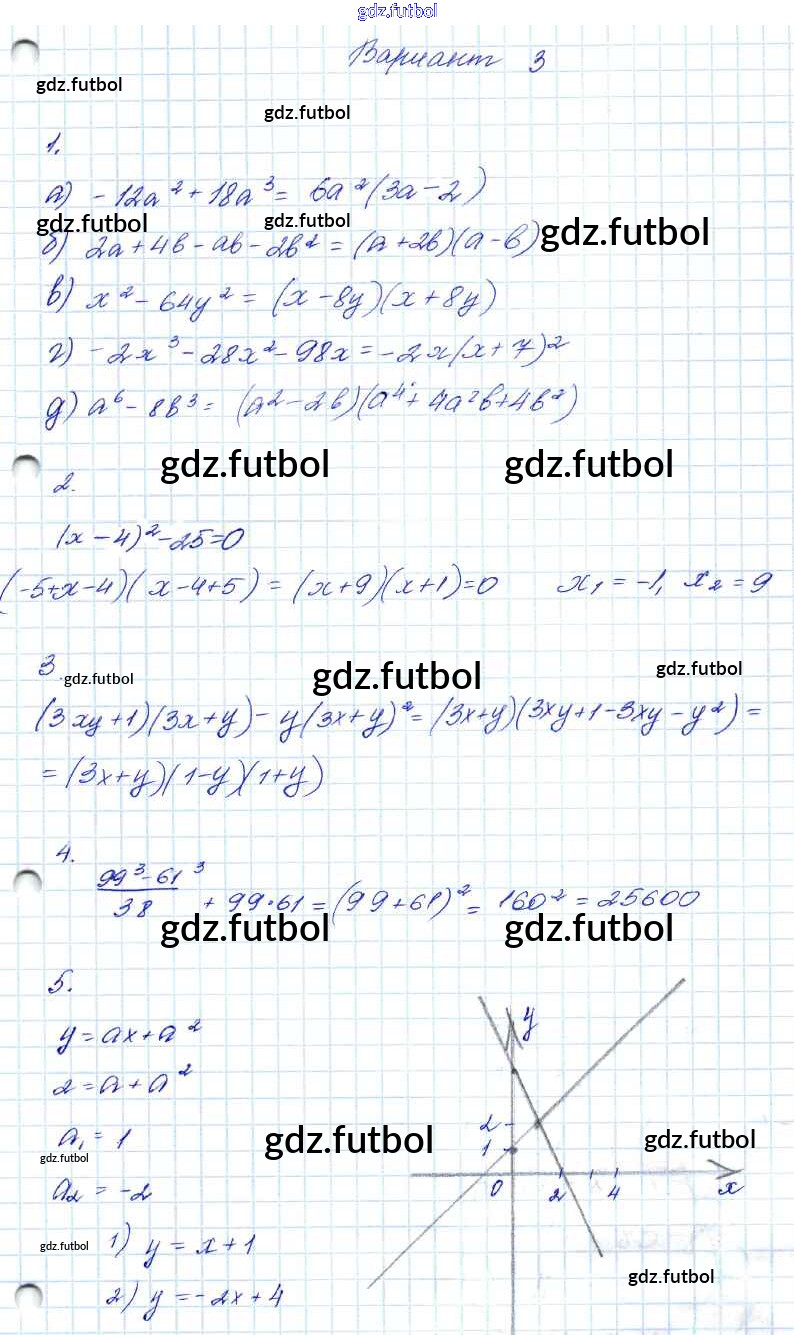 gdz.futbol
Вариант 3
gdz.futbol
gdz.futbol
1.
а) -12a² + 18a³ = 6a²(3a - 2)
gdz.futbol gdz.futbol
б) 2a + 4b - ab - 2b² = (a + 2b)(a - b) gdz.futbol
в) x² - 64y² = (x - 8y)(x + 8y)
г) -2x³ - 28x² - 98x = -2x(x + 7)²
д) a⁶ - 8b³ = (a² - 2b)(a⁴ + 4a²b + 4b²)
gdz.futbol gdz.futbol
2.
(x - 4)² - 25 = 0
(-5 + x - 4)(x - 4 + 5) = (x + 9)(x + 1) = 0 x₁ = -1, x₂ = 9
3
gdz.futbol gdz.futbol gdz.futbol
(3xy + 1)(3x + y) - y(3x + y)² = (3x + y)(3xy + 1 - 3xy - y²) =
= (3x + y)(1 - y)(1 + y)
4.
99³ - 61³
38 + 99·61 = (99 + 61)² = 160² = 25600
gdz.futbol gdz.futbol
5.
y = ax + a²
2 = a + a²
a₁ = 1
gdz.futbol
a₂ = -2
gdz.futbol
1) y = x + 1
2) y = -2x + 4
y
2
1
0 2 4 x
gdz.futbol
gdz.futbol
gdz.futbol